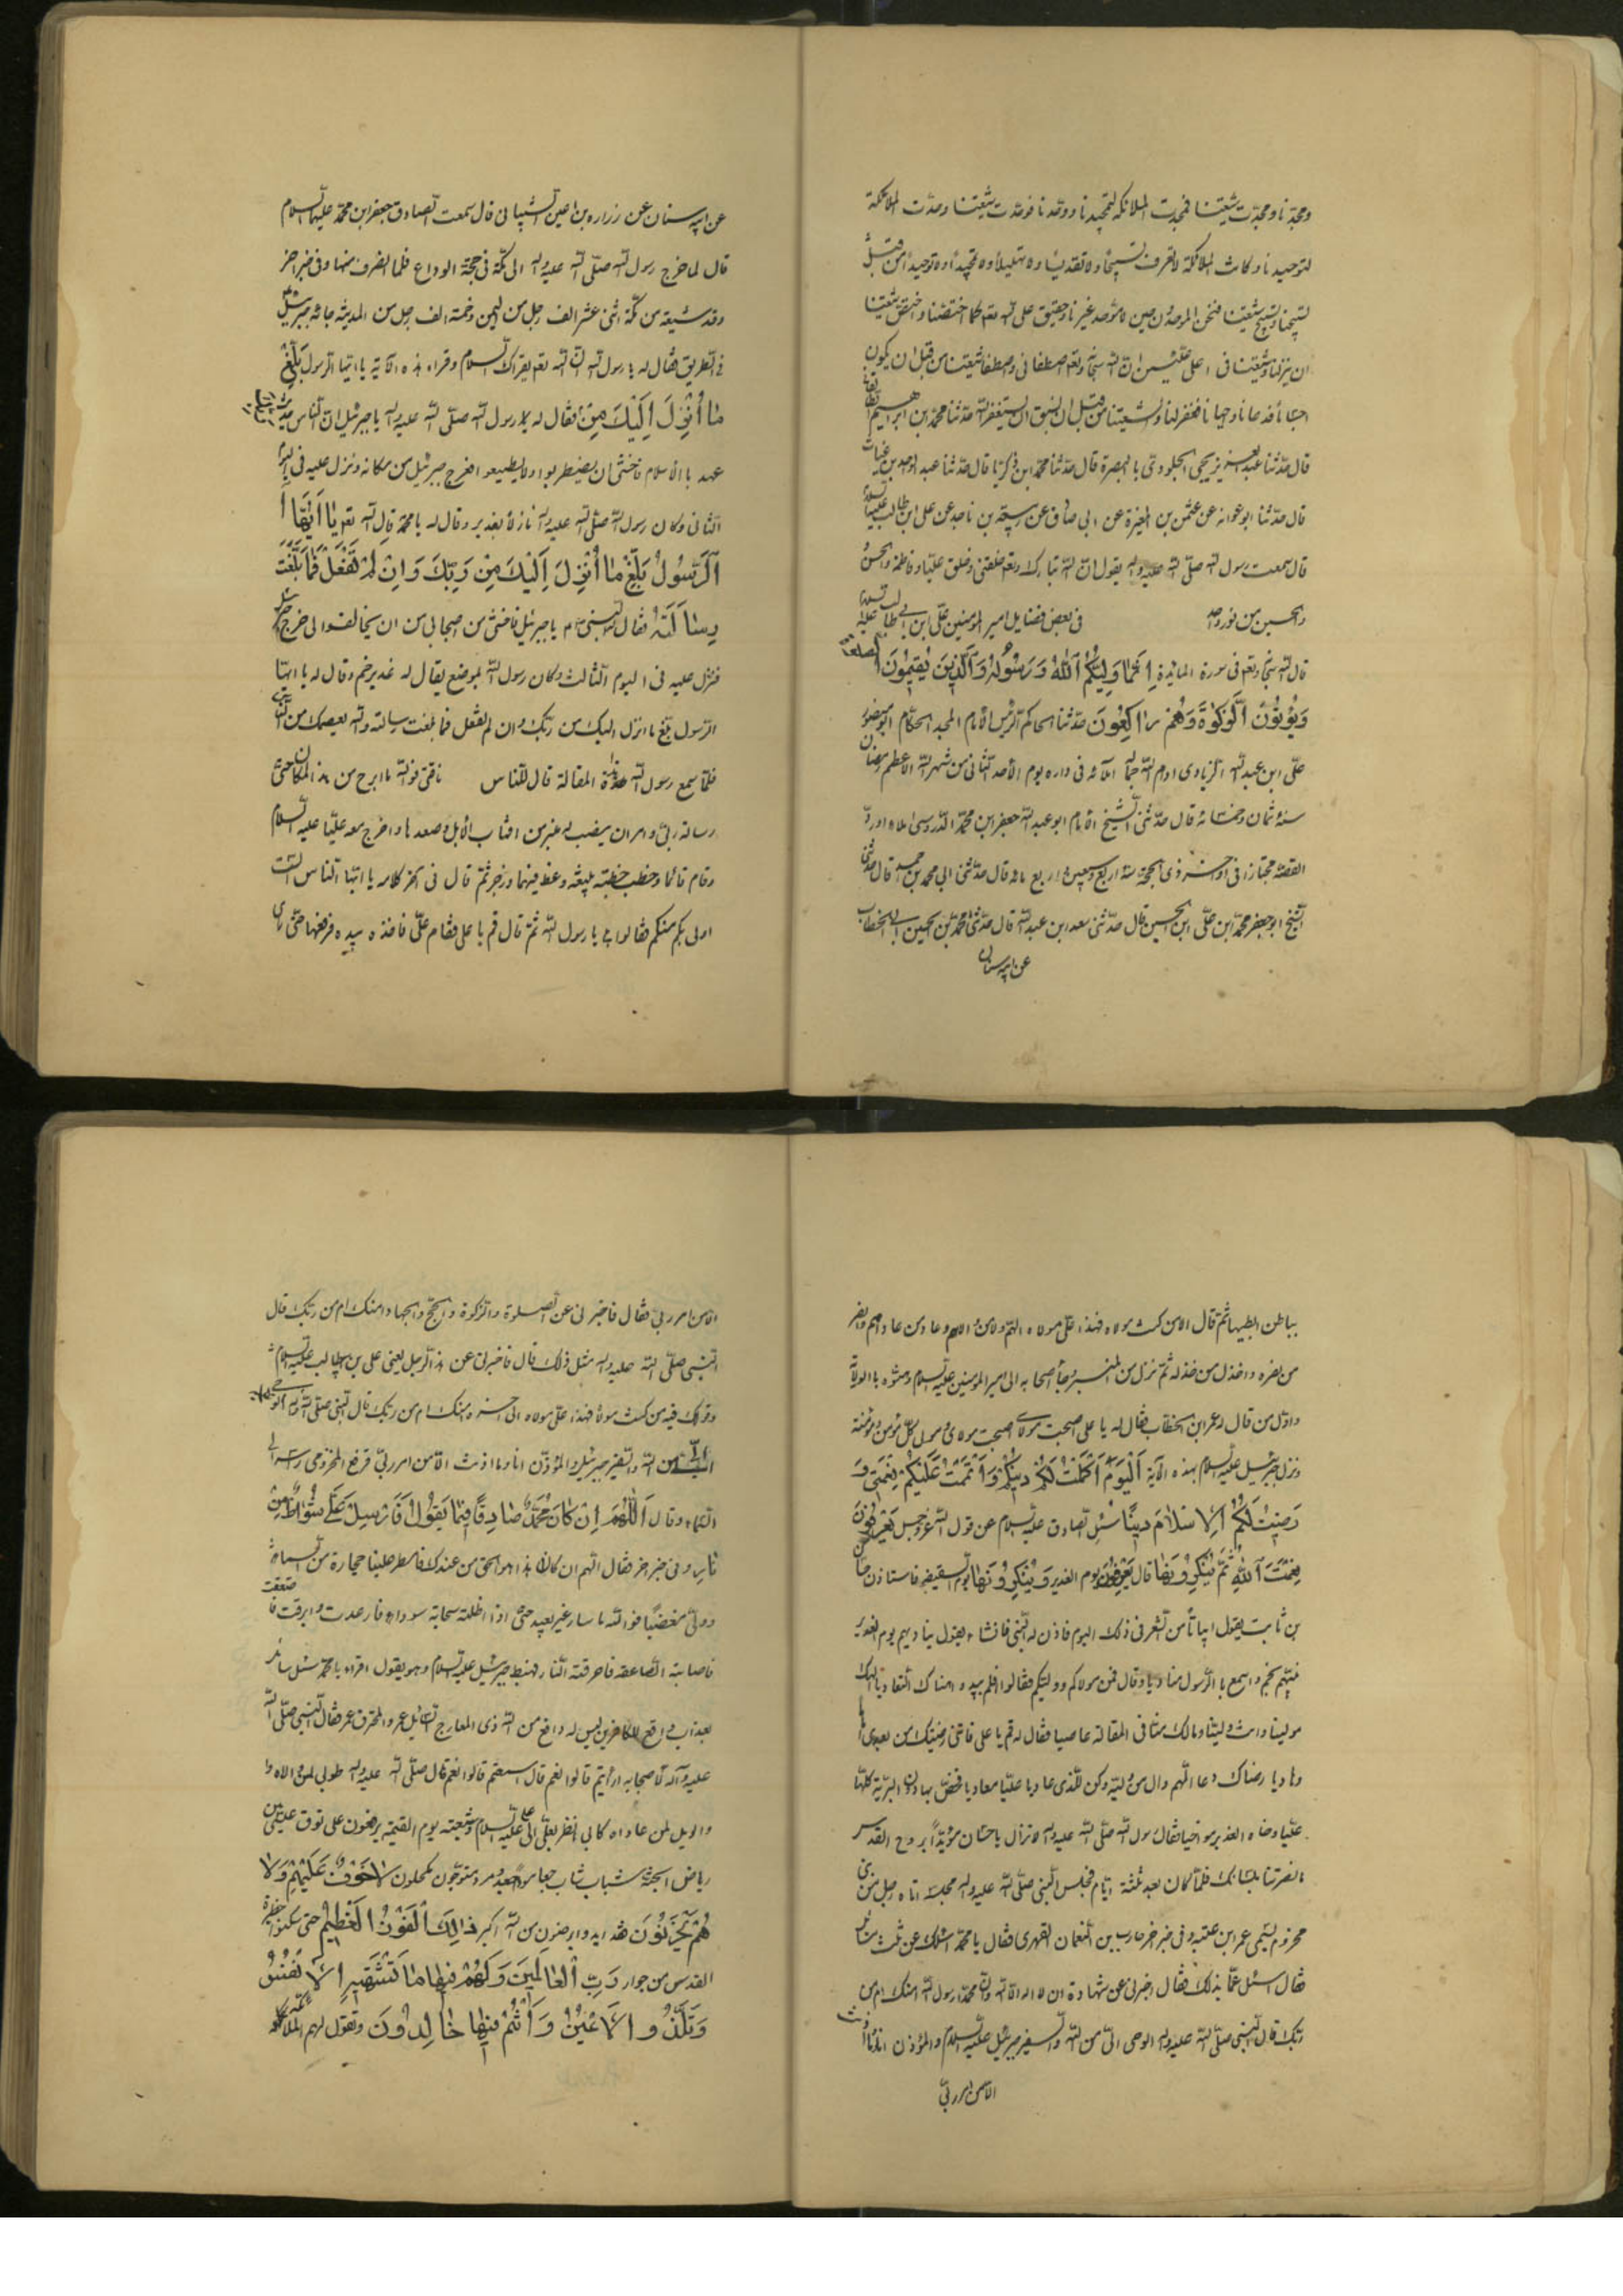 ومجدنا ومجدت شیعتنا فمجدت الملائکة لتمجیدنا ووحدنا فوحدت شیعتنا وحدت الملائکة
لتوحیدنا وکانت الملائکة لا تعرف تسبیحا ولا تقدیسا ولا تهلیلا ولا تمجیدا ولا توحیدا من قبل
تسبیحنا وتسبیح شیعتنا فنحن الموحدون حین لا موحد غیرنا وحقیق علی الله تعم کما اختصنا واختص شیعتنا
ان ینزلنا وشیعتنا فی اعلی علیین ان الله سبحانه وتعم اصطفانی واصطفا شیعتنا من قبل ان یکون
اجساما فدعانا واجبنا فغفر لنا ولشیعتنا من قبل ان نستغفر الله حدثنا محمد ابن ابراهیم
قال حدثنا عبد العزیز یحیی الجلودی بالبصرة قال حدثنا محمد ابن زکریا قال حدثنا عبد الواحد بن غیاث
قال حدثنا ابو عوانه عن عثمن بن المغیرة عن ابی صادق عن ربیعة بن ناجد عن علی ابن ابی طالب علیه السلم
قال سمعت رسول الله صلی الله علیه واله یقول ان الله تبارک وتعم خلقنی وخلق علیا وفاطمة والحسن
والحسین من نور واحد فی بعض فضایل امیر المومنین علی ابن ابی طالب علیه السلم
قال الله سبحانه وتعم فی سورة المائدة اِنَّمَا وَلِیُّکُمُ اللهُ وَرَسُولُهُ وَالَّذِینَ یُقِیمُونَ الصلوة
وَیُؤْتُونَ الزَّکوٰةَ وَهُمْ رٰاکِعُونَ حدثنا الحاکم الرئیس الامام المجد الحکام ابو منصور
علی ابن عبد الله الزیادی ادام الله جماله املاء فی داره یوم الاحد الثانی من شهر الله الاعظم رمضان
سنة ثمان وخمسمائه قال حدثنی الشیخ الامام ابو عبد الله جعفر ابن محمد الدوریستی املاء اورد
القصة مجتازا فی اواخر ذی الحجة سنة اربع وسبعین واربع مائه قال حدثنی ابی محمد بن احمد قال حدثنی
الشیخ ابو جعفر محمد ابن علی ابن الحسین قال حدثنی سعد ابن عبد الله قال حدثنا محمد بن الحسین ابی الخطاب
عن ابیه سنان
عن ابیه سنان عن زراره بن اعین الشیبانی قال سمعت الصادق جعفر ابن محمد علیهما السلام
قال لما خرج رسول الله صلی الله علیه واله الی مکة فی حجة الوداع فلما انصرف منها وفی خبر اخر
وقد شیعه من مکة اثنی عشر الف رجل من الیمن وخمسة الف رجل من المدینة جاءه جبرئیل
فی الطریق فقال له یا رسول الله ان الله تعم یقرئک السلام وقراء هذه الآیة یا ایها الرسول بَلِّغْ
مٰا اُنْزِلَ اِلَیْکَ مِنْ فقال له رسول الله صلی الله علیه واله یا جبرئیل ان الناس حدیث
عهد بالاسلام فاخشی ان یضطربوا ولا یطیعوا فعرج جبرئیل من مکانه ونزل علیه فی الیوم
الثانی وکان رسول الله صلی الله علیه واله نازلا بغدیر وقال له یا محمد قال الله تعم یٰا اَیُّهَا
اَلرَّسُولُ بَلِّغْ مٰا اُنْزِلَ اِلَیْکَ مِنْ رَبِّکَ وَاِنْ لَمْ تَفْعَلْ فَمٰا بَلَّغْتَ
رِسٰالَتَهُ فقال النبی یا جبرئیل فاخشی من اصحابی من ان یخالفوا لی فعرج جبرئیل
فنزل علیه فی الیوم الثالث وکان رسول الله بموضع یقال له غدیر خم وقال له یا ایها
الرسول بلغ ما انزل الیک من ربک وان لم تفعل فما بلغت رسالته والله یعصمک من الناس
فلما سمع رسول الله هذه المقالة قال للناس ناقتی فوالله ما ابرح من هذا المکان حتی
رسالة ربی وامر ان ینصب له منبر من اقتاب الابل وصعدها واخرج معه علیا علیه السلام
وقام قائما وخطب خطبة بلیغة وعظ فیها وزجر ثم قال فی اخر کلامه یا ایها الناس الست
اولی بکم منکم فقالوا بلی یا رسول الله ثم قال قم یا علی فقام علی فاخذه بیده فرفعها حتی رای
بیاض ابطیهما ثم قال الا من کنت مولاه فهذا علی مولاه اللهم وال من والاه وعاد من عاداه وانصر
من نصره واخذل من خذله ثم نزل من المنبر وجاء اصحابه الی امیر المومنین علیه السلام وهنوه بالولایة
واول من قال له عمر ابن الخطاب فقال له یا علی اصبحت مولای ومولی کل مؤمن ومؤمنة
ونزل جبرئیل علیه السلام بهذه الآیة اَلْیَوْمَ اَکْمَلْتُ لَکُمْ دِینَکُمْ وَاَتْمَمْتُ عَلَیْکُمْ نِعْمَتِی وَ
رَضِیتُ لَکُمُ اَلْاِسْلامَ دِینًا سئل الصادق علیه السلام عن قول الله عز وجل یَعْرِفُونَ
نِعْمَتَ اَللهِ ثُمَّ یُنْکِرُونَهَا قال یَعْرِفُونَ یوم الغدیر وَیُنْکِرُونَهَا یوم السقیفه فاستاذن حسان
بن ثابت یقول ابیاتا من الشعر فی ذلک الیوم فاذن له النبی فانشاء یقول ینادیهم یوم الغدیر
نبیهم بخم واسمع بالرسول منادیا وقال فمن مولاکم وولیکم فقالوا ولم یبدوا هناک التعادیا الهک
مولینا وانت ولینا ومالک منا فی المقالة عاصیا فقال له قم یا علی فاننی رضیتک من بعدی
وهادیا رضاک دعا اللهم وال من ولیه وکن للذی عادیا علیا معادیا فخص بها دون البریة کلها
علیا وسماه الغدیر مواخیا فقال رسول الله صلی الله علیه واله لا تزال یا حسان مؤیدا بروح القدس
ما نصرتنا بلسانک فلما کان بعد ثلثة ایام فجلس النبی صلی الله علیه واله مجلسه اتاه رجل من بنی
مخزوم یسمی عمر ابن عتبه وفی خبر اخر حارث بن النعمان الفهری فقال یا محمد اسئلک عن ثلث مسائل
فقال اسئل عما بدا لک فقال اخبرنی عن شهادة ان لا اله الا الله وان محمد رسول الله امنک ام من
ربک قال النبی صلی الله علیه واله الوحی الی من الله والسفیر جبرئیل علیه السلام والمؤذن انا وما اذنت
الا من امر ربی
الا من امر ربی فقال فاخبرنی عن الصلوة والزکوة والحج والجهاد امنک ام من ربک قال
النبی صلی الله علیه واله مثل ذلک قال فاخبرنی عن هذا الرجل یعنی علی بن ابیطالب علیه السلام
وقولک فیه من کنت مولاه فهذا علی مولاه الی اخره امنک ام من ربک قال النبی صلی الله علیه واله الوحی
الی من الله والسفیر جبرئیل والمؤذن انا وما اذنت الا من امر ربی فرفع المخزومی راسه الی
السماء وقال اَللّٰهُمَّ اِنْ کَانَ مُحَمَّدٌ صٰادِقًا فِیمٰا یَقُولُ فَاَرْسِلْ عَلَیَّ شُوٰاظًا مِنْ
نار وفی خبر اخر فقال اللهم ان کان هذا هو الحق من عندک فامطر علینا حجارة من السماء
وولی مغضبا فوالله ما سار غیر بعید حتی اذا اظلته سحابة سوداء فارعدت وابرقت فاصعقت
فاصابته الصاعقه فاحرقته النار فهبط جبرئیل علیه السلام وهو یقول اقراء یا محمد سئل سائل
بعذاب واقع للکافرین لیس له دافع من الله ذی المعارج السائل عمر والمحترق عمر فقال النبی صلی الله
علیه وآله لاصحابه ارایتم قالوا نعم قال سمعتم قالوا نعم قال صلی الله علیه واله طوبی لمن والاه و
والویل لمن عاداه کانی انظر الی علی علیه السلام وشیعته یوم القیمة یزفون علی نوق علی من
ریاض الجنة شباب متوجون مکحلون لٰا خَوْفٌ عَلَیْهِمْ وَلٰا
هُمْ یَحْزَنُونَ قد ایدوا برضوان من الله اکبر ذٰلِکَ الْفَوْزُ الْعَظِیمُ حتی سکنوا حظیرة
القدس من جوار رَبِّ الْعٰالَمِینَ وَلَهُمْ فِیهٰا مٰا تَشْتَهِی الْاَنْفُسُ
وَتَلَذُّ الْاَعْیُنُ وَاَنْتُمْ فِیهٰا خٰالِدُونَ ویقول لهم الملائکة